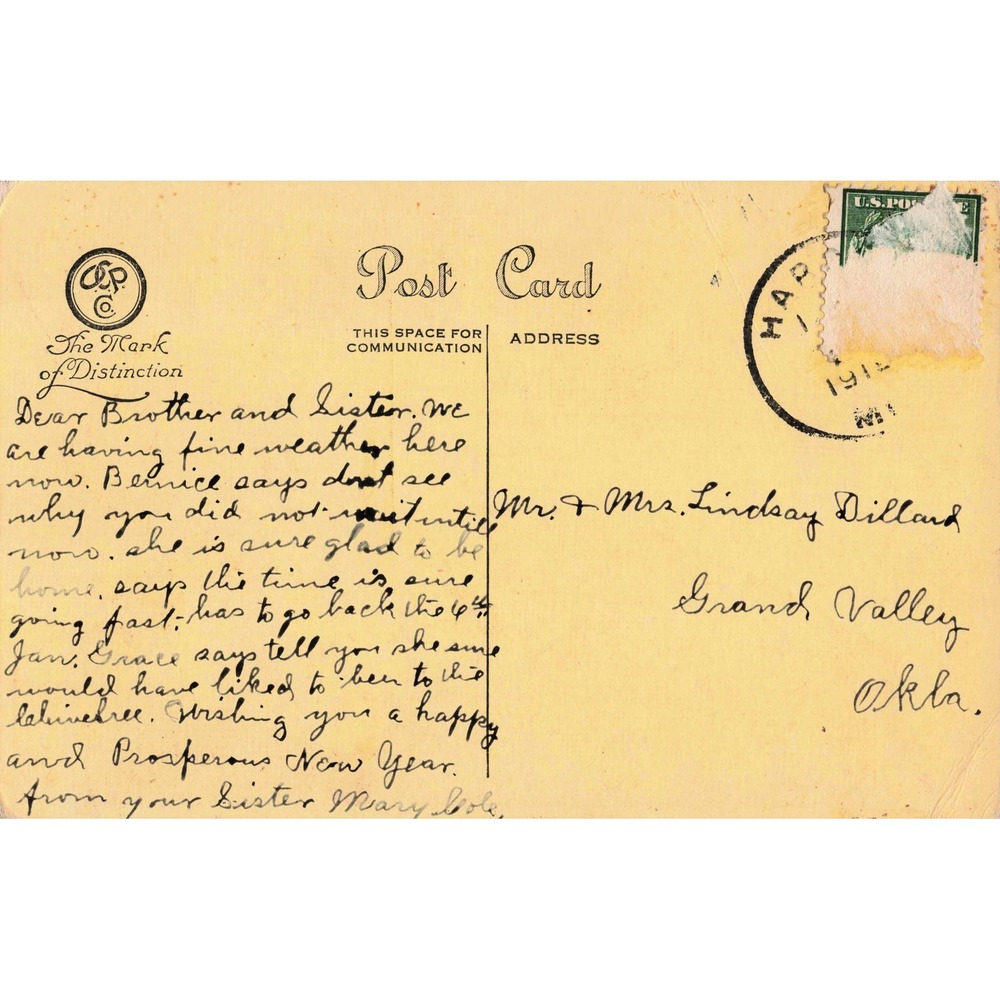 U.S.POS E
Post Card
HAR
191
The Mark
of Distinction
THIS SPACE FOR
COMMUNICATION
ADDRESS
Co.
Dear Brother and Sister. We
are having fine weather here
now. Bernice says dont see
why you did not wait untill
now. she is sure glad to be
home. says the time is sure
going fast; has to go back the 6th
Jan. Grace says tell you she sure
would have liked to been to the
Wishing you a happy
and Prosperous New Year.
from your Sister Mary Cole.
Mr. & Mrs. Lindsay Dillard
Grand Valley
Okla.